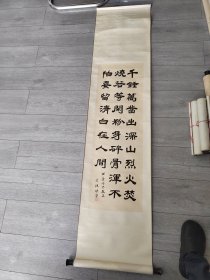 千錘萬鑿出深山烈火焚
燒若等閑粉身碎骨渾不
怕要留清白在人間